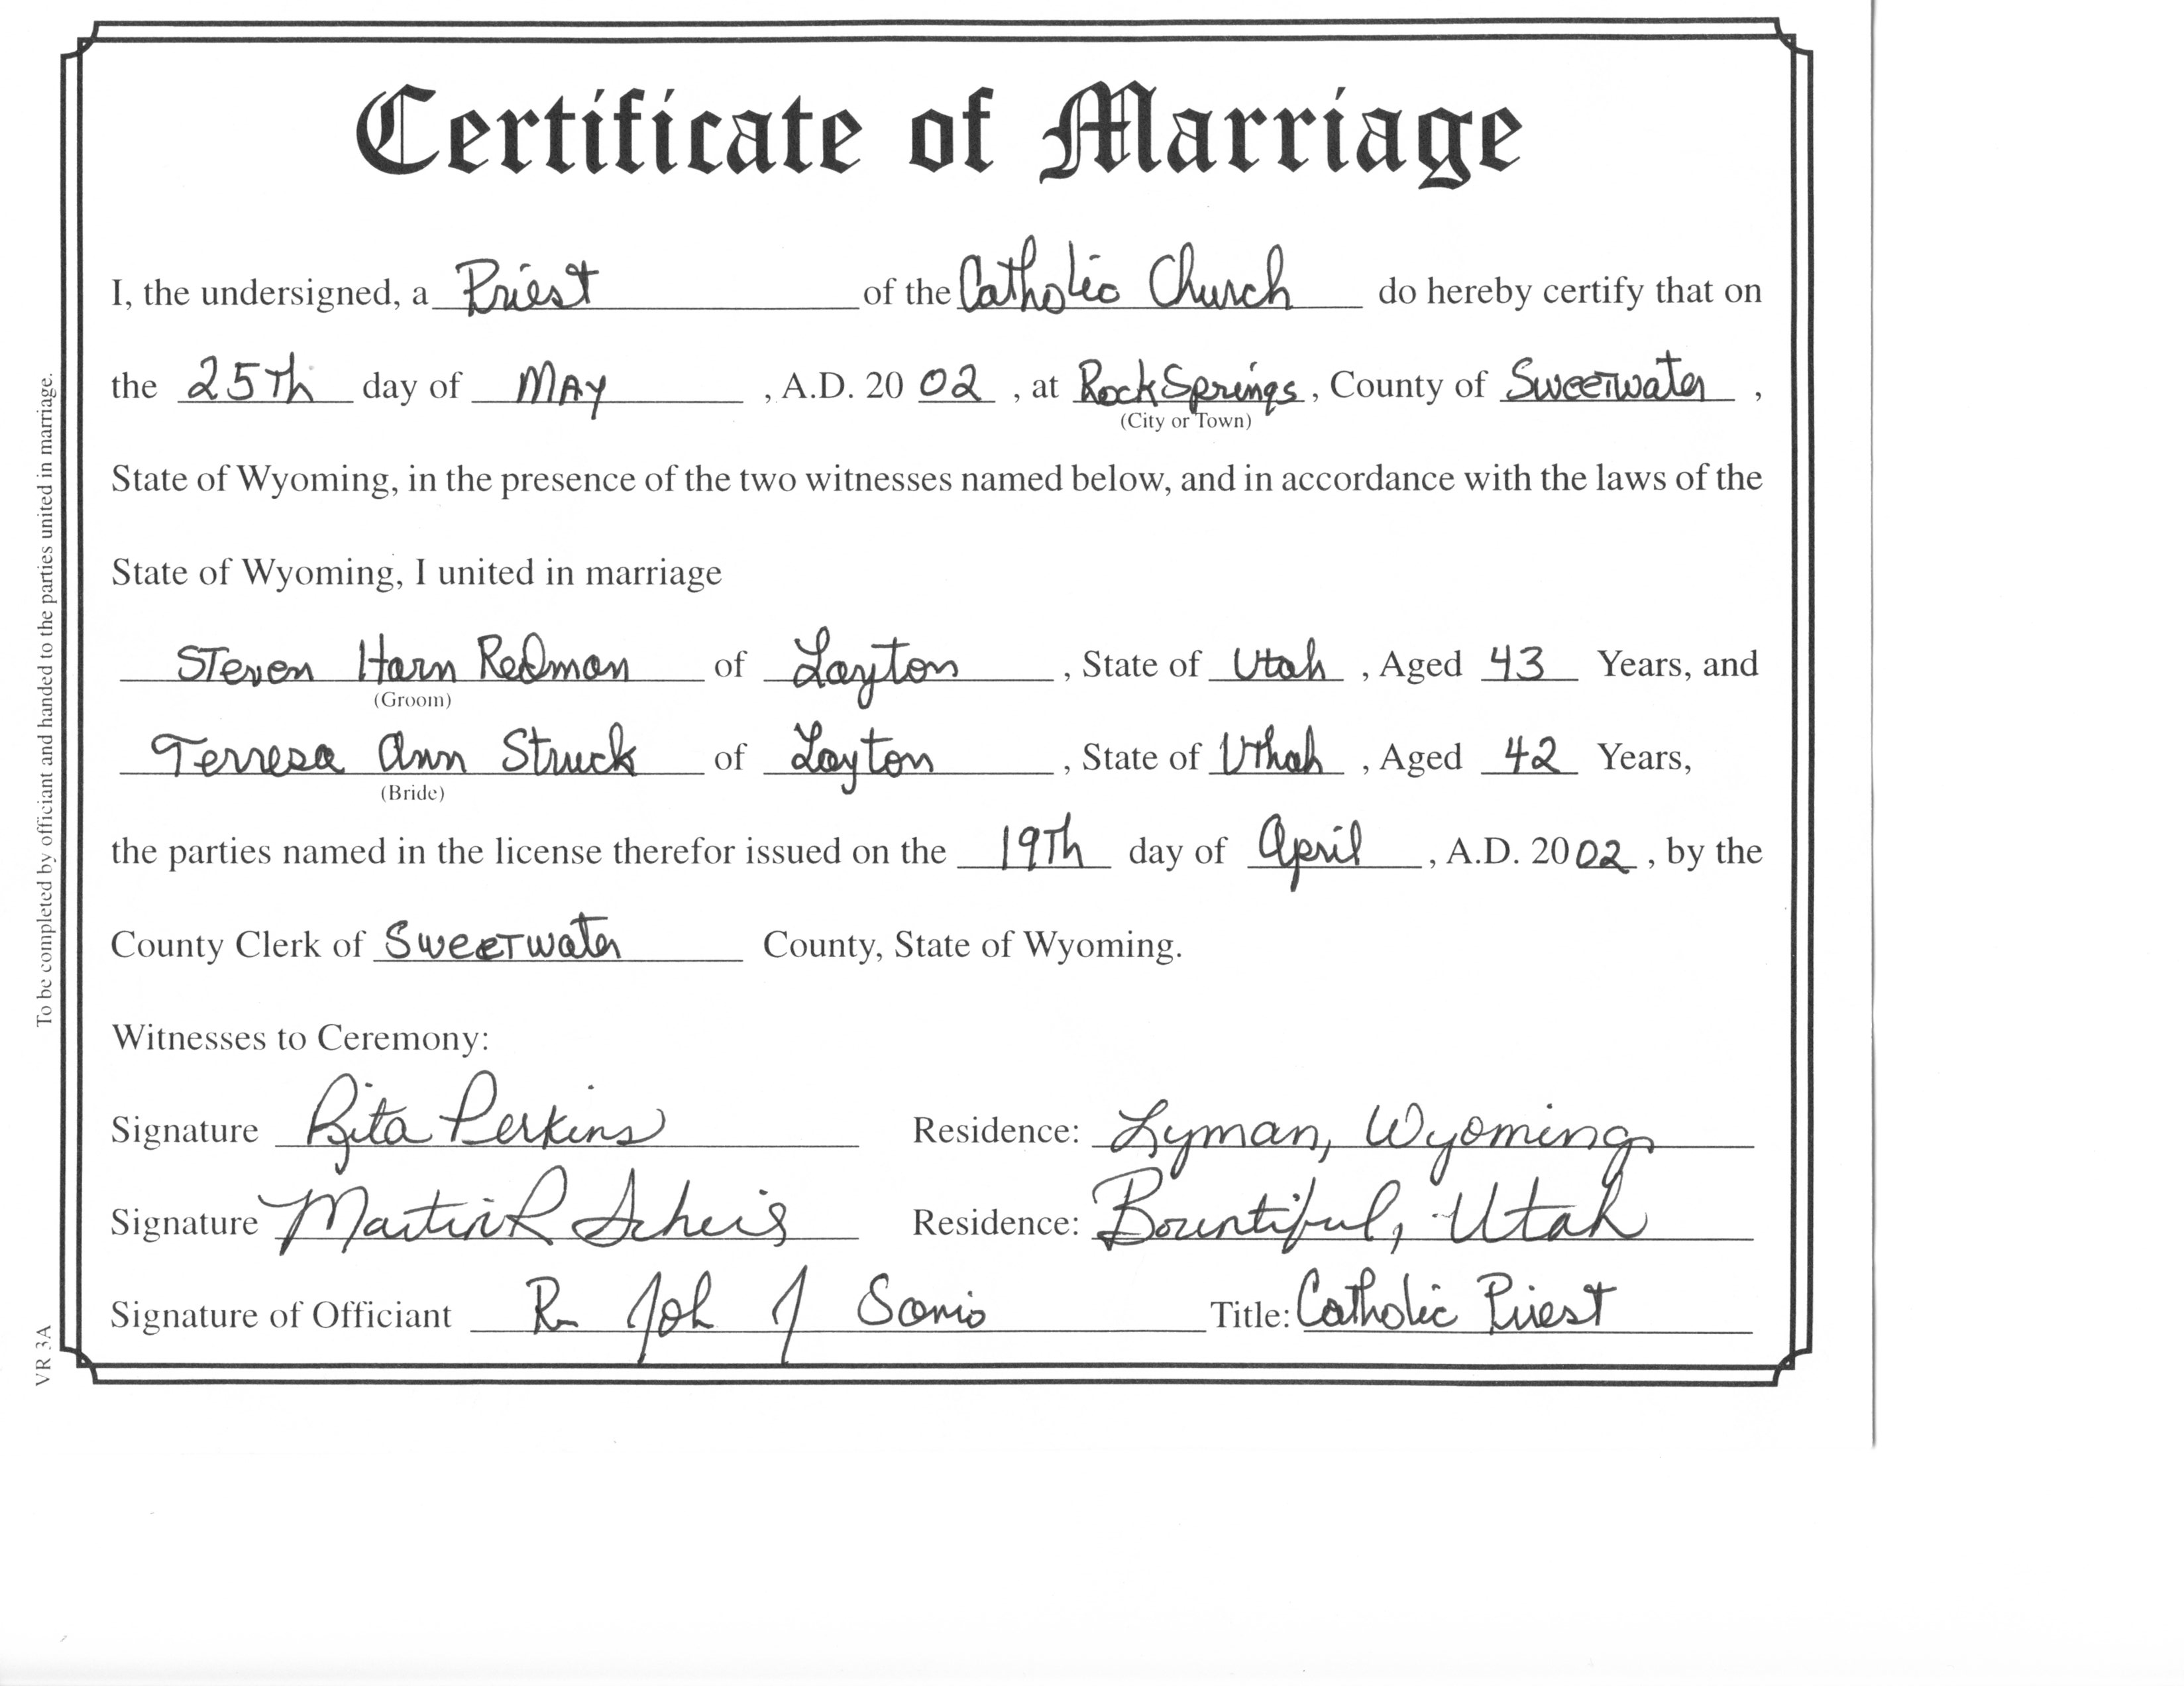 Certificate of Marriage
I, the undersigned, a Priest of the Catholic Church do hereby certify that on
the 25Th day of MAY , A.D. 20 02 , at Rock Springs , County of Sweetwater ,
(City or Town)
State of Wyoming, in the presence of the two witnesses named below, and in accordance with the laws of the
State of Wyoming, I united in marriage
Steven Harn Redman of Layton , State of Utah , Aged 43 Years, and
(Groom)
Terresa Ann Struck of Layton , State of Uthah , Aged 42 Years,
(Bride)
the parties named in the license therefor issued on the 19Th day of April , A.D. 20 02 , by the
County Clerk of Sweetwater County, State of Wyoming.
Witnesses to Ceremony:
Signature Rita Perkins Residence: Lyman, Wyoming
Signature Martin R Scheis Residence: Bountiful, Utah
Signature of Officiant J Title: Catholic Priest
To be completed by officiant and handed to the parties united in marriage.
VR 3A